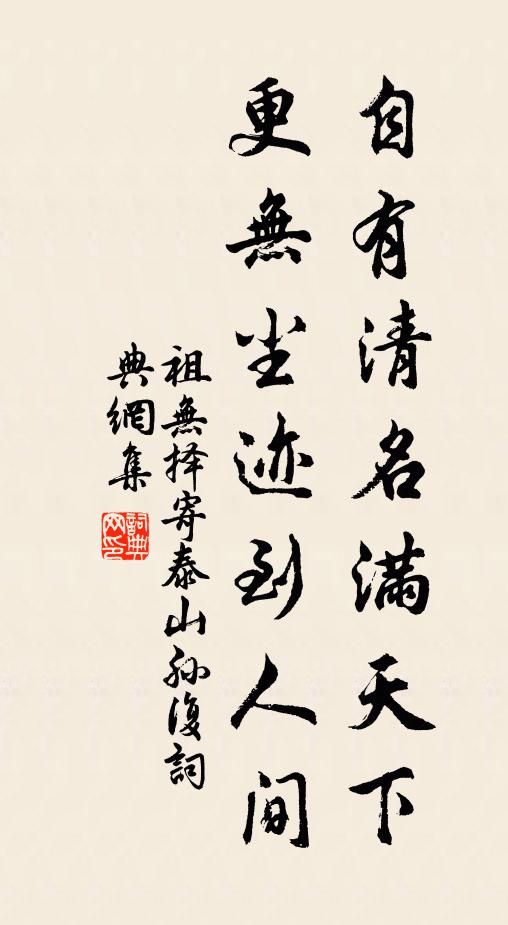 自有清名满天下
更無尘迹到人间
祖無择寄泰山孙復詞
典網集
詞典网印